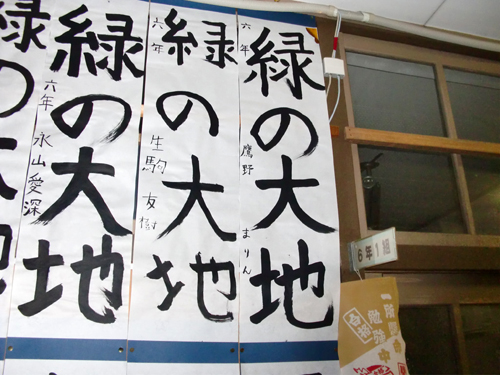 緑の大地
六年
鷹野
まりん
緑の大地
六年
生駒
友樹
緑の大地
六年
永山愛深
緑の大地
6年1組
勉強中